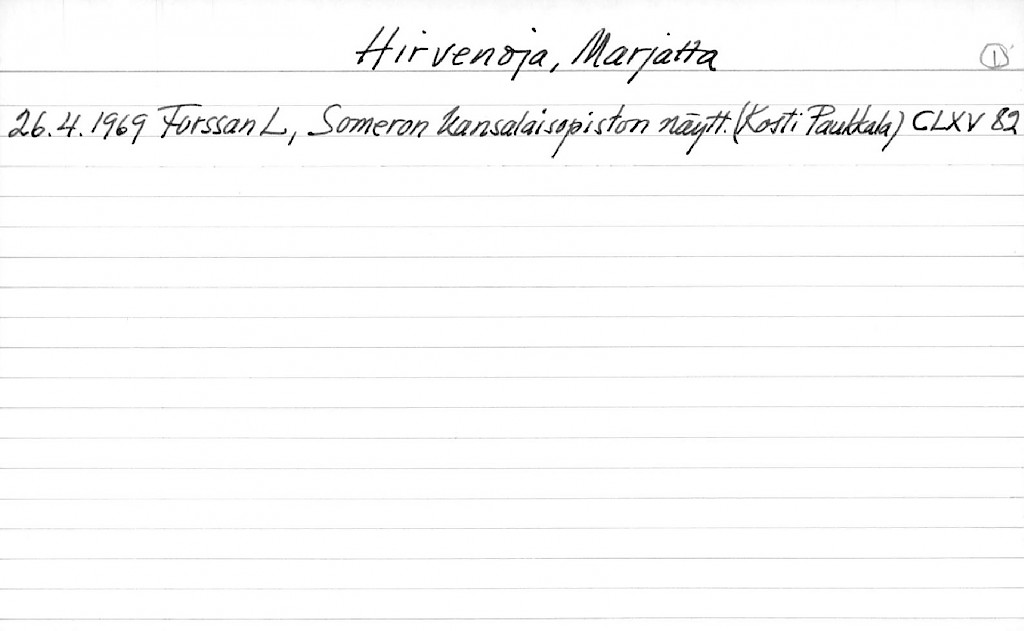 Hirvenoja, Marjatta 1
26.4.1969 Forssan L, Someron Kansalaisopiston näytt. (Kosti Paukkala) CLXV 82